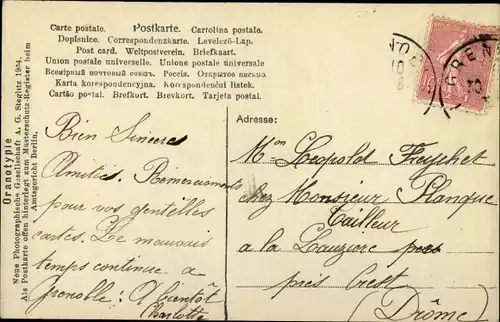 Carte postale. Postkarte. Cartolina postale.
Dopisnice. Correspondenzkarte. Levelező-Lap.
Post card. Weltpostverein. Briefkaart.
Union postale universelle. Unione postale universale.
Всемірный почтовый союзъ. Россія. Открытое письмо.
Karta korespondencyjna. Korrespondenční listek.
Cartão postal. Brefkort. Brevkort. Tarjeta postal.
Oranotypie
Neue Photographische Gesellschaft A. G. Steglitz 1904.
Als Postkarte offen hinterlegt zum Musterschutz-Register beim
Amtsgericht Berlin.
Bien Sincères
Amitiés. Remerciements
pour vos gentilles
cartes. Le mauvais
temps continue a
grenoble. A bientôt
Charlotte
GREN
Adresse:
Mon Léopold
chez Monsieur Planque
Tailleur
a la Lauzière
près Crest
(Drôme)